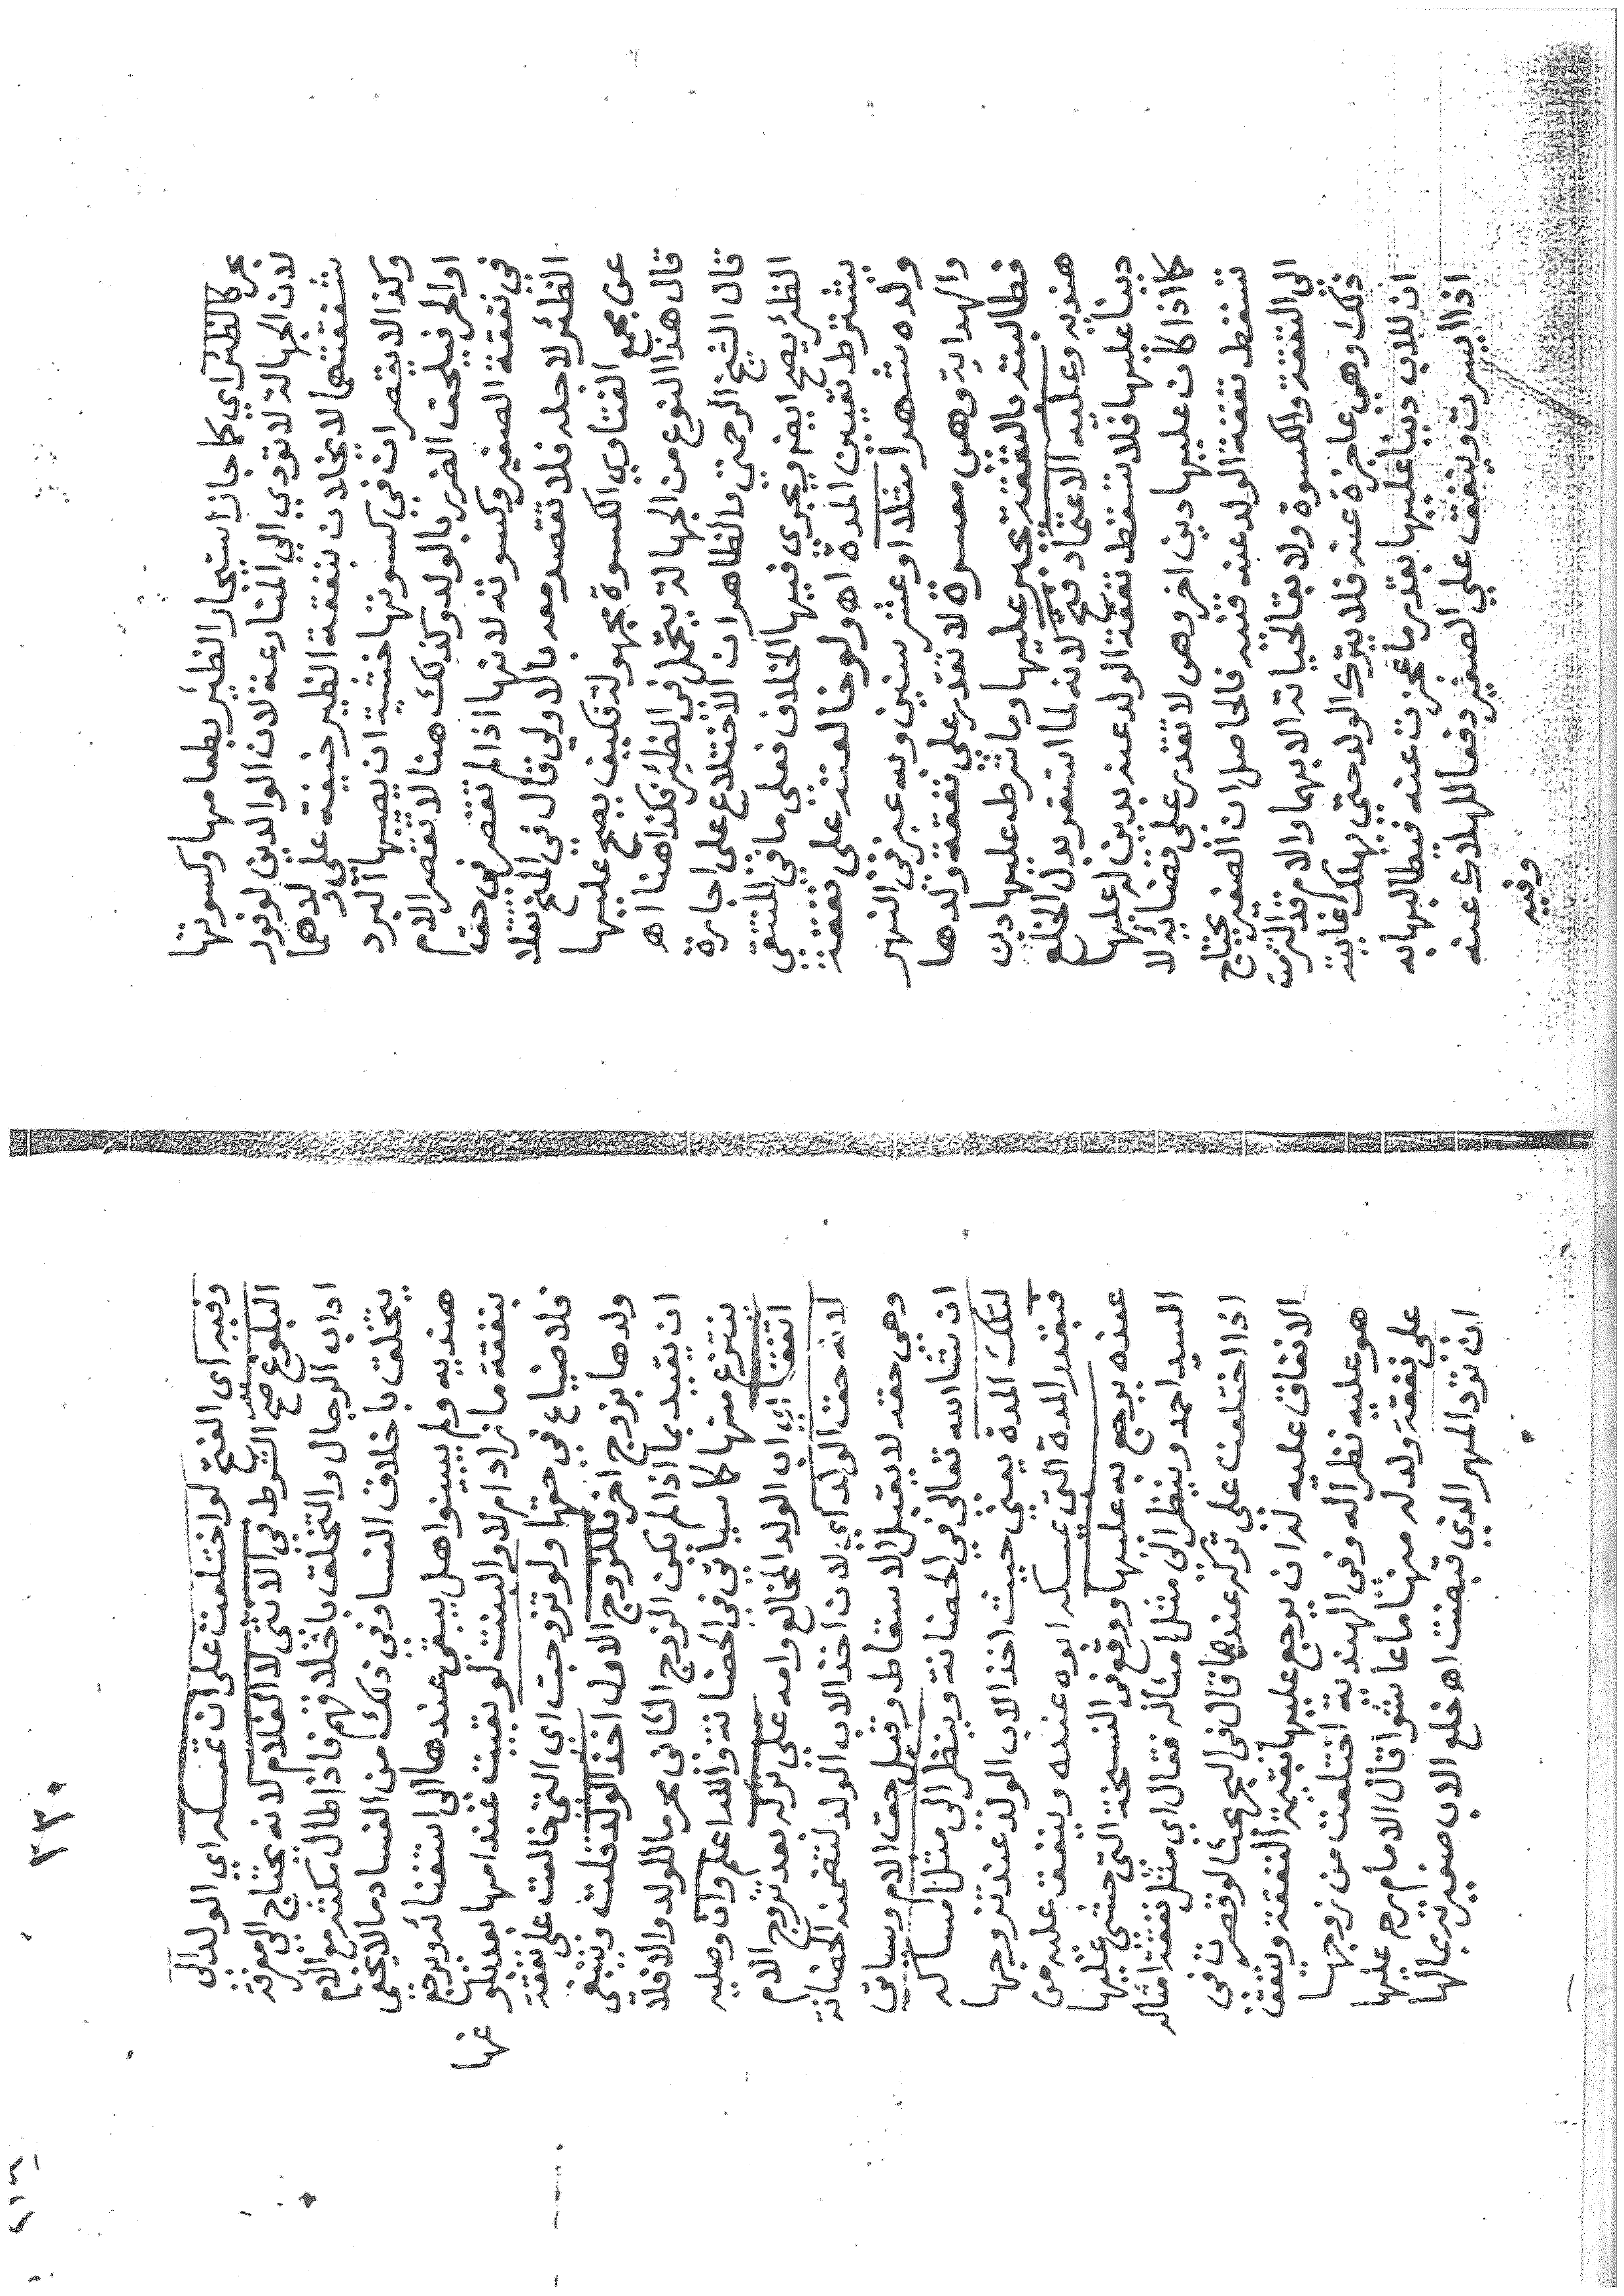 عر كالظئر اي كما جاز استيجار الظئر بطعامها وكسوتها
لان الجهالة لا تودي الي المنازعة لان الوالدين لوفور
شفقتهما لا يخلان بنفقة الظير خيفة علي ولدهما
وكذا لا يقصران في كسوتها خشية ان يضها البرد
او الحر فيلحق الضرر بالولد وكذلك هنا لا تقصر الام
في نفقة الصغير وكسوته لانها اذا لم تقصر في حق
الظئر لاجله فلا تقصد معه بالاولي قال في المنح نقلا
عن مجمع الفتاوي الكسوة مجهولة فكيف يصح عليها
قال هذا النوع من الجهالة يتحمل في الظير فكذا هنا اه
قال الشيخ الرحمتي والظاهر ان الاختلاع علي اجارة
الظئر يصح ايضا ويجري فيها الخلاف فعلي ما في المنتقي
يشترط تعيين المدة اه ولو خالعته علي نفقة
ولده شهرا مثلا او عشر سنين وبه عبر في النهر
والهداية وهي معسرة لا تقدر علي نفقة ولدها
فطالبته بالنفقة يجبر عليها وما شرط عليها دين
هنديه وعليه الاعتماد فتح لانه لما استقر بدل الخلع
دينا عليها فلا تسقط نفقة الولد عنه بدين له عليها
كما اذا كان عليها دين اخر وهي لا تقدر علي قضايه لا
تسقط نفقة الولد عنه قنيه فالحاصل ان الصغير يحتاج
الي النفقة والكسوة ولا بقا لحياته الا بهما والام قد التزمت
ذلك وهي عاجزة عنه فلا يترك الولد حتي يهلك غاية
ان للاب دينا عليها بقدر ما عجزت عنه فيطالبها به
اذا ايسرت وينفق علي الصغير دفعا للهلاك عنه
وفيه
وفيه اي الفتح لو اختلعت علي ان تمسكه اي الولد الي
البلوغ صح الشرط في الانثي لا الغلام لانه يحتاج الي معرفة
اداب الرجال والتخلق باخلاقهم فاذا طال مكثه مع الام
يتخلق باخلاق النسا وفي ذلك من الفساد ما لا يخفي
هنديه ولم يبينوا هل يبقي عندها الي استغنائه ويرجع
بنفقة ما زاد ام لا والبنت لو بقيت عند امها بعد بلو
غها
فلا ضياع في حقها ولو تزوجت اي التي خالعت علي نفقة
ولدها بزوج اخر فللزوج الاول اخذ الولد قلت وينبغي
ان يقيد بما اذا لم يكن الزوج الثاني محرما للولد والا فلا
ينتزع منها كما سياتي في الحضانة والله اعلم وان وصلية
اتفقا اي ابي الولد المخالع وامه علي تركه بعد تزوج الام
لانه حق الولد اي لان اخذ الاب الولد لتضمنه الحضانة
وهي حقه لا يقبل الاسقاط وقيل حق الام وسياتي
ان شا الله تعالي في الحضانة وينظر الي مثل امساكه
لتلك المدة يعني حيث اخذ الاب الولد عند تزوجها
فبقدر المدة التي يمسكه ابوه عنده وينفق عليه من
عنده يرجع به عليها ووقع في النسخة التي حشي عليها
السيد احمد وينظر الي مثل امثاله فقال اي مثل نفقة امثاله
اذا اختلعت علي تركه عندها قال في البحر بحثا لو قصرت في
الانفاق عليه له ان يرجع عليها بقيمة النفقة وينفق
هو عليه نظرا له وفي الهندية اختلعت من زوجها
علي نفقة ولد له منها ما عاشوا قال الامام رح عليها
ان ترد المهر الذي قبضت اه خلع الاب صغيرته بمالها
٢٣٠